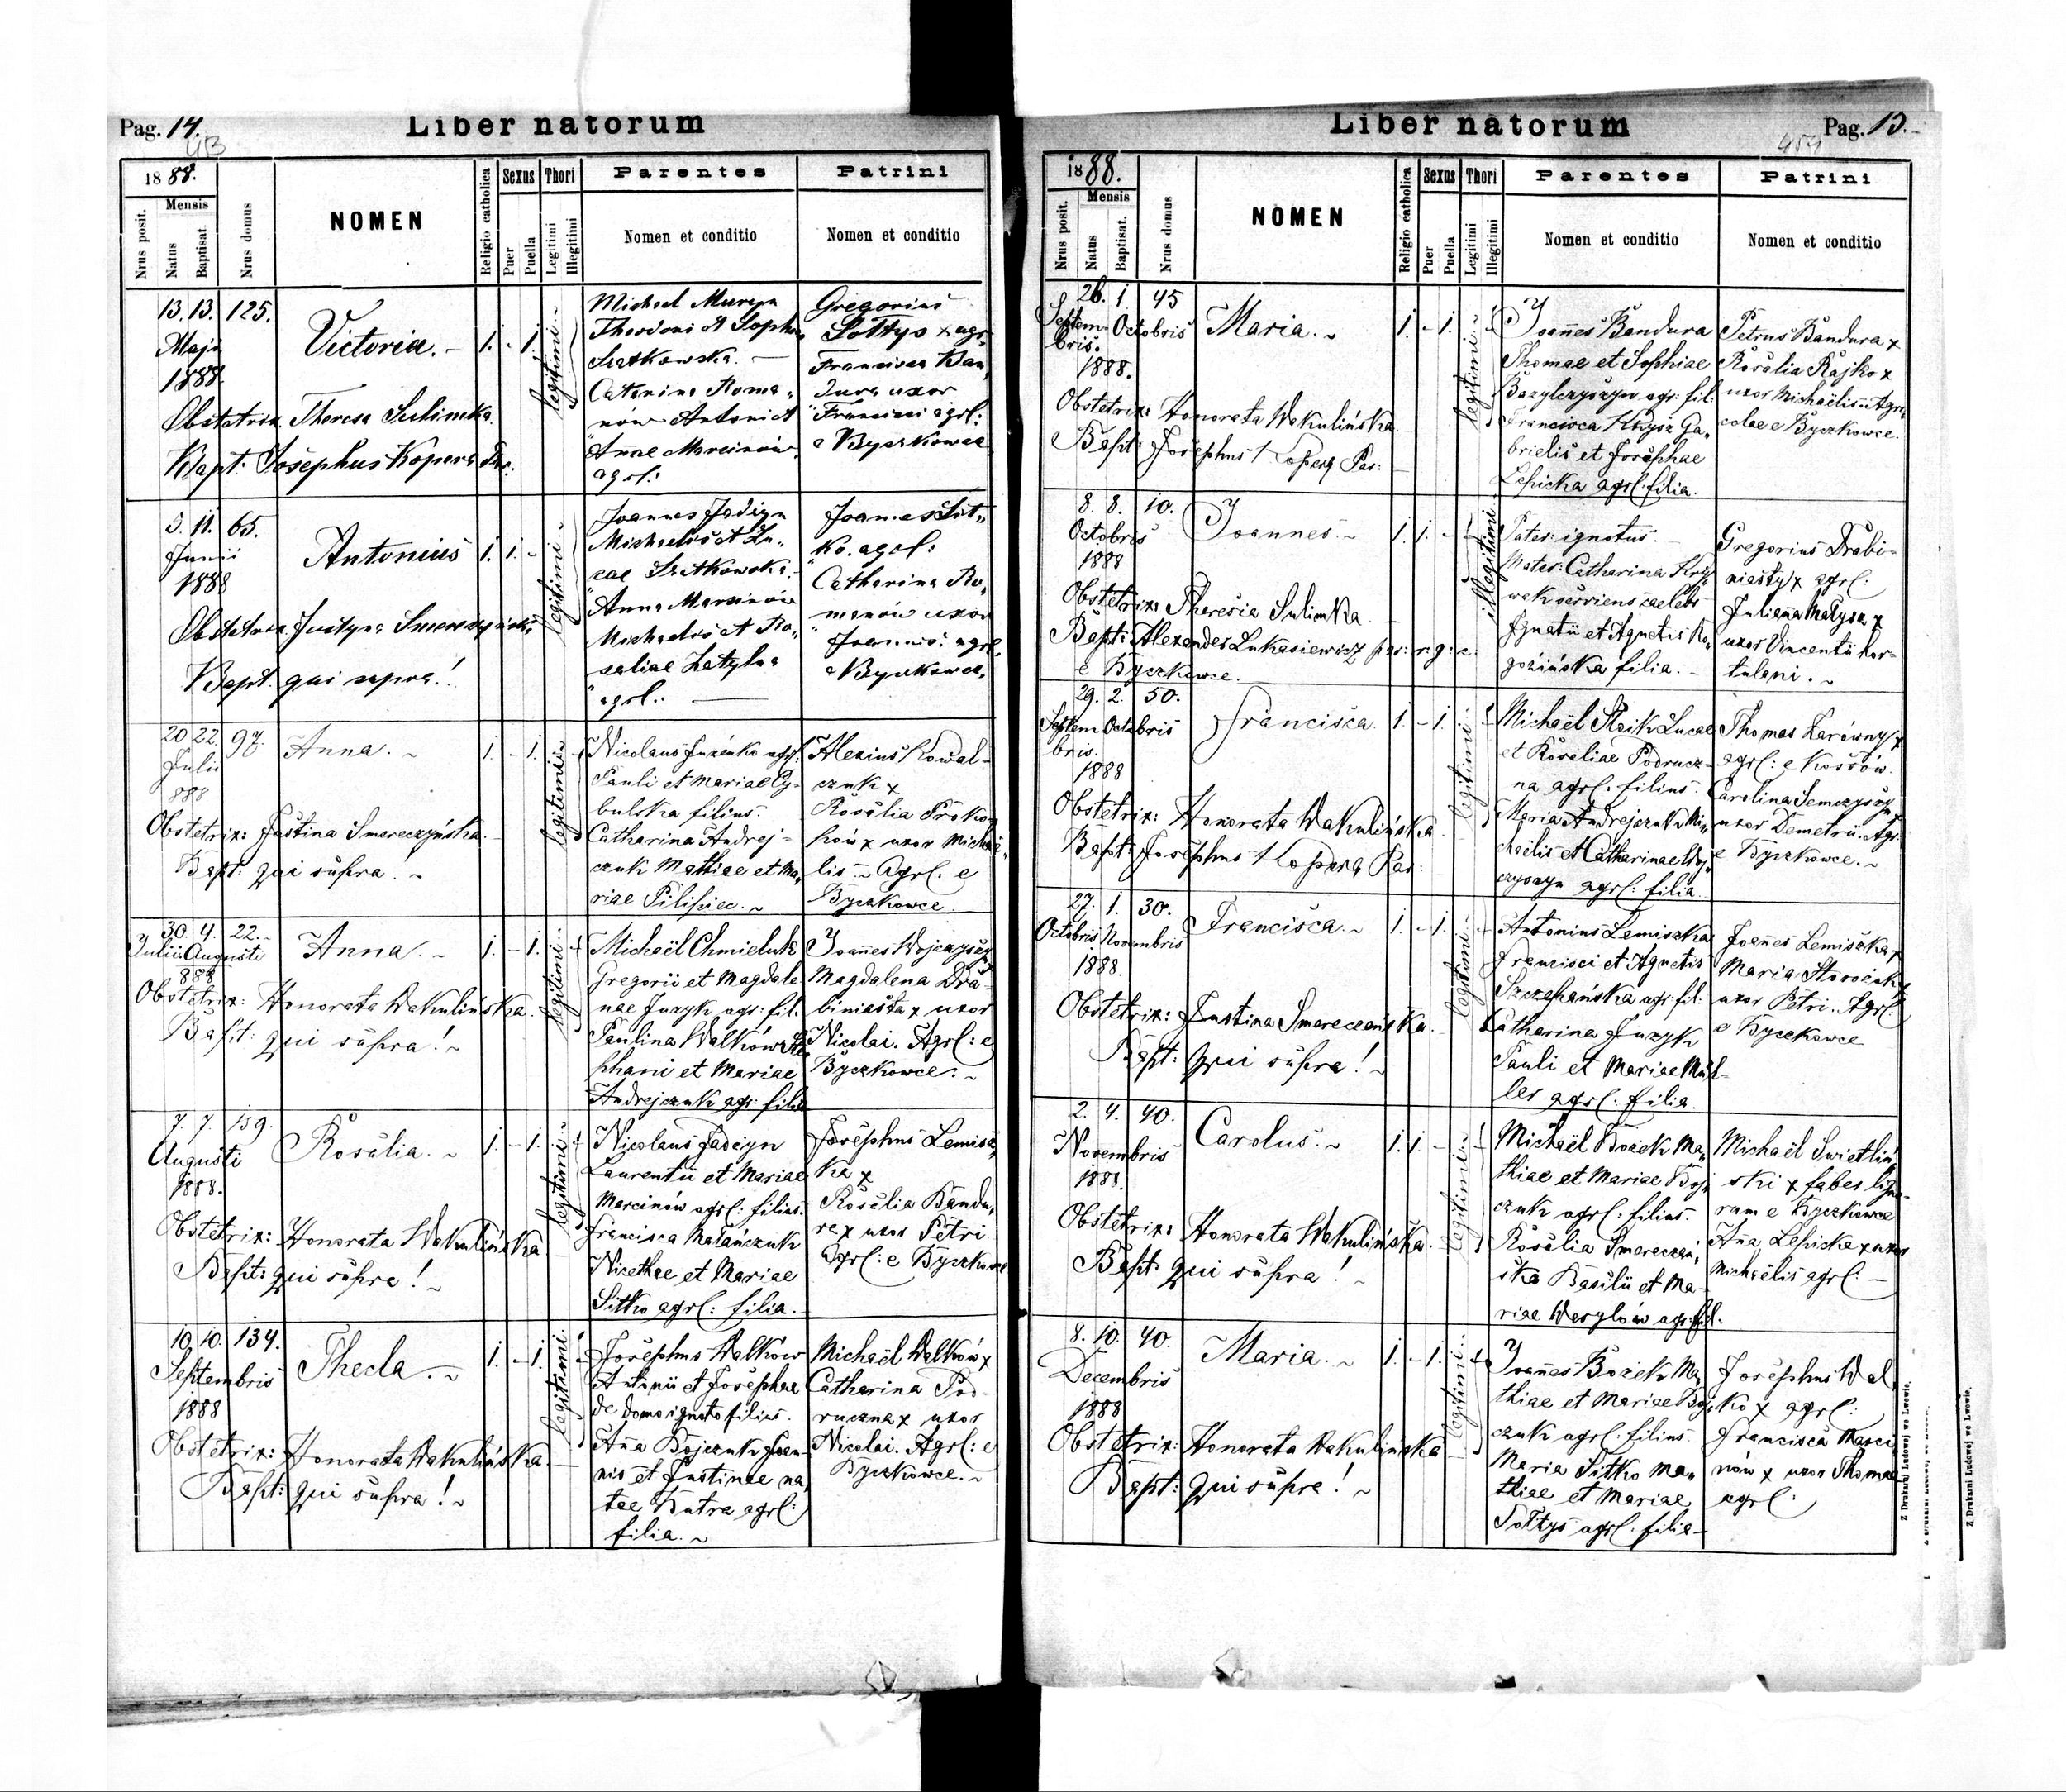 Pag. 14.
Liber natorum
1888.
Mensis
Nrus posit.
Natus
Baptisat.
Nrus domus
NOMEN
Religio catholica
Sexus
Puer
Puella
Thori
Legitimi
Illegitimi
Parentes
Nomen et conditio
Patrini
Nomen et conditio
13. 13. 125.
Maji
1888
Victoria. -
1. - 1.
legitimi
Michael
Theodori et Sophia
Szatkowska. —
Catarina Roma„
nów Antoni et
Annae Marcinów
agrl:
Gregorius
Sołtys x agr.
Francisca Ban„
dura uxor
Francisci agrl:
e Byczkowce
Obstetrix Theresa Sulimka
Bapt: Josephus Kopera Par.
11. 65.
Junii
1888
Antonius
1. 1. -
legitimi
Joannes Jadczyn
Michaelis et Lu„
cae Szatkowska.
Anna Marcinów
Michaelis et Ro„
saliae
agrl: —
Joannes Sit„
ko. agrl:
Catharina Ro„
manów uxor
Joannis: agrl.
e Byczkowce.
Obstetrix Justyna
Bapt. qui supra!
20 22 97.
Julii
888
Anna. ~
1. - 1.
legitimi
Nicolaus Juzenko agrl:
Pauli et Mariae Cy-
bulska filius.
Catharina Andrej-
czuk Mathiae et Ma„
riae Pilipiec. ~
Alexius Kowal-
czuk x
Rosalia Proko„
pów x uxor Michae„
lis ~ Agrl: e
Byczkowce.
Obstetrix: Justina Smereczyńska.
Bapt: qui supra. ~
30. 4. 22.
Julii Augusti
888
Anna. ~
1. - 1.
legitimi
Michaël Chmieluk
Gregorii et Magdale
nae Juzyk agr: fil.
Paulina Walków Ste
phani et Mariae
Andrejczuk agr: filia
Joannes Wojczyszyn
Magdalena Dra-
biniasta x uxor
Nicolai. Agrl: e
Byczkowce. ~
Obstetrix: Honorata Wakulińska.
Bapt: qui supra! ~
7. 7. 159.
Augusti
1888.
Rosalia. ~
1. - 1.
legitimi
Nicolaus Jadczyn
Laurentii et Mariae
Marcinów agrl: filius.
Francisca Małańczuk
Nicethae et Mariae
Sitko agrl: filia.
Josephus Lemisz„
ka x
Rosalia Bandu„
ra x uxor Petri
Agrl: e Byczkowce
Obstetrix: Honorata Wakulińska.
Bapt: qui supra! ~
10. 10. 134.
Septembris
1888
Thecla. ~
1. - 1.
legitimi
Josephus Walków
Antonii et Josephae
de domo ignoto filius.
Anna Bojczuk Joan
nis et Justinae na„
tae Butra agrl:
filia. ~
Michaël Walków x
Catharina Pod
ruczna x uxor
Nicolai. Agrl: e
Byczkowce. ~
Obstetrix: Honorata Wakulińska.
Bapt: qui supra! ~
Liber natorum
Pag. 15.
1888.
Mensis
Nrus posit.
Natus
Baptisat.
Nrus domus
NOMEN
Religio catholica
Sexus
Puer
Puella
Thori
Legitimi
Illegitimi
Parentes
Nomen et conditio
Patrini
Nomen et conditio
26. 1 45
Septem- Octobris
bris.
1888.
Maria. ~
1. - 1.
legitimi
Joannes Bandura
Thomae et Sophiae
Bazylczyszyn agr: fil:
Francisca Hrysz Ga„
brielis et Josephae
Lepicka agrl: filia.
Petrus Bandura x
Rosalia Rajko x
uxor Michaëlis ~ Agri
colae e Byczkowce.
Obstetrix: Honorata Wakulińska
Bapt: Josephus Kopera Par:
8. 8. 10.
Octobris
1888
Joannes. ~
1. 1. -
illegitimi
Pater: ignotus. -
Mater: Catharina Kry
wak serviens caelebs
Ignatii et Agnetis Ro„
gozińska filia. -
Gregorius Drabi-
niasty x agrl:
Juliana Małysa x
uxor Vincentii hor-
tulani. ~
Obstetrix: Theresia Sulimka.
Bapt: Alexander Lukasiewicz par: r. g: c.
e Byczkowce.
29. 2. 50.
Septem Octobris
bris.
1888
Francisca.
1. - 1.
legitimi
Michaël Stasik Lucae
et Rosaliae Podrucz-
na agrl. filius.
Maria Andrejczuk Mi„
chaëlis et Catharinae Woj
czyszyn agrl: filia.
Thomas Zarówny x
agrl: e Kossów.
Carolina Semczyszyn
uxor Demetrii. Agr:
e Byczkowce. ~
Obstetrix: Honorata Wakulińska
Bapt: Josephus Kopera Par:
27. 1. 30.
Octobris Novembris
1888.
Francisca. ~
1. - 1.
legitimi
Antonius Lemiszka
Francisci et Agnetis
Szczepańska agr: fil:
Catharina Juzyk
Pauli et Mariae Mül-
ler agrl: filia.
Joannes Lemiszka x
Maria
uxor Petri. Agrl:
e Byczkowce
Obstetrix: Justina Smereczańska.
Bapt: qui supra! ~
2. 4. 40.
Novembris
1888.
Carolus. ~
1. 1. -
legitimi
Michaël Bozek Ma„
thiae et Mariae Boj„
czuk agrl: filius.
Rosalia Smereczań„
ska Basilii et Ma-
riae Wasylów agr: fil:
Michaël Swietliń
ski x faber ligna-
rum e Byczkowce
Anna Lepicka x uxor
Michaëlis agrl: —
Obstetrix: Honorata Wakulińska.
Bapt: qui supra! ~
8. 10. 40.
Decembris
1888
Maria. ~
1. - 1.
legitimi
Joannes Bozek Ma„
thiae et Mariae Boj„
czuk agrl: filius.
Maria Sitko Ma„
thiae et Mariae
Sołtys agrl: filia
Josephus Wal„
ko x agrl:
Francisca Marci
nów x uxor Thomae
agrl:
Obstetrix: Honorata Wakulińska
Bapt: qui supra! ~
Z Drukarni Ludowej we Lwowie.
Z Drukarni Ludowej we Lwowie.